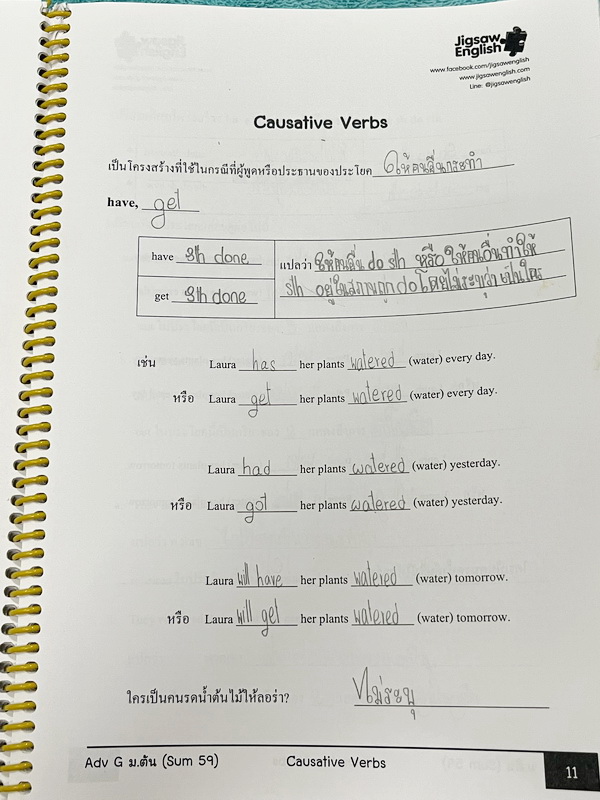 Jigsaw
English
www.facebook.com/jigsawenglish
www.jigsawenglish.com
Line: @jigsawenglish
Causative Verbs
เป็นโครงสร้างที่ใช้ในกรณีที่ผู้พูดหรือประธานของประโยค ให้คนอื่นกระทำ
have, get
have sth done
แปลว่า ให้คนอื่น do sth หรือ ให้คนอื่นทำให้
get sth done
sth อยู่ในสภาพถูก do โดยไม่ระบุว่าเป็นใคร
เช่น Laura has her plants watered (water) every day.
หรือ Laura get her plants watered (water) every day.
Laura had her plants watered (water) yesterday.
หรือ Laura got her plants watered (water) yesterday.
Laura will have her plants watered (water) tomorrow.
หรือ Laura will get her plants watered (water) tomorrow.
ใครเป็นคนรดน้ำต้นไม้ให้ลอร่า? ไม่ระบุ
Adv G ม.ต้น (Sum 59) Causative Verbs 11